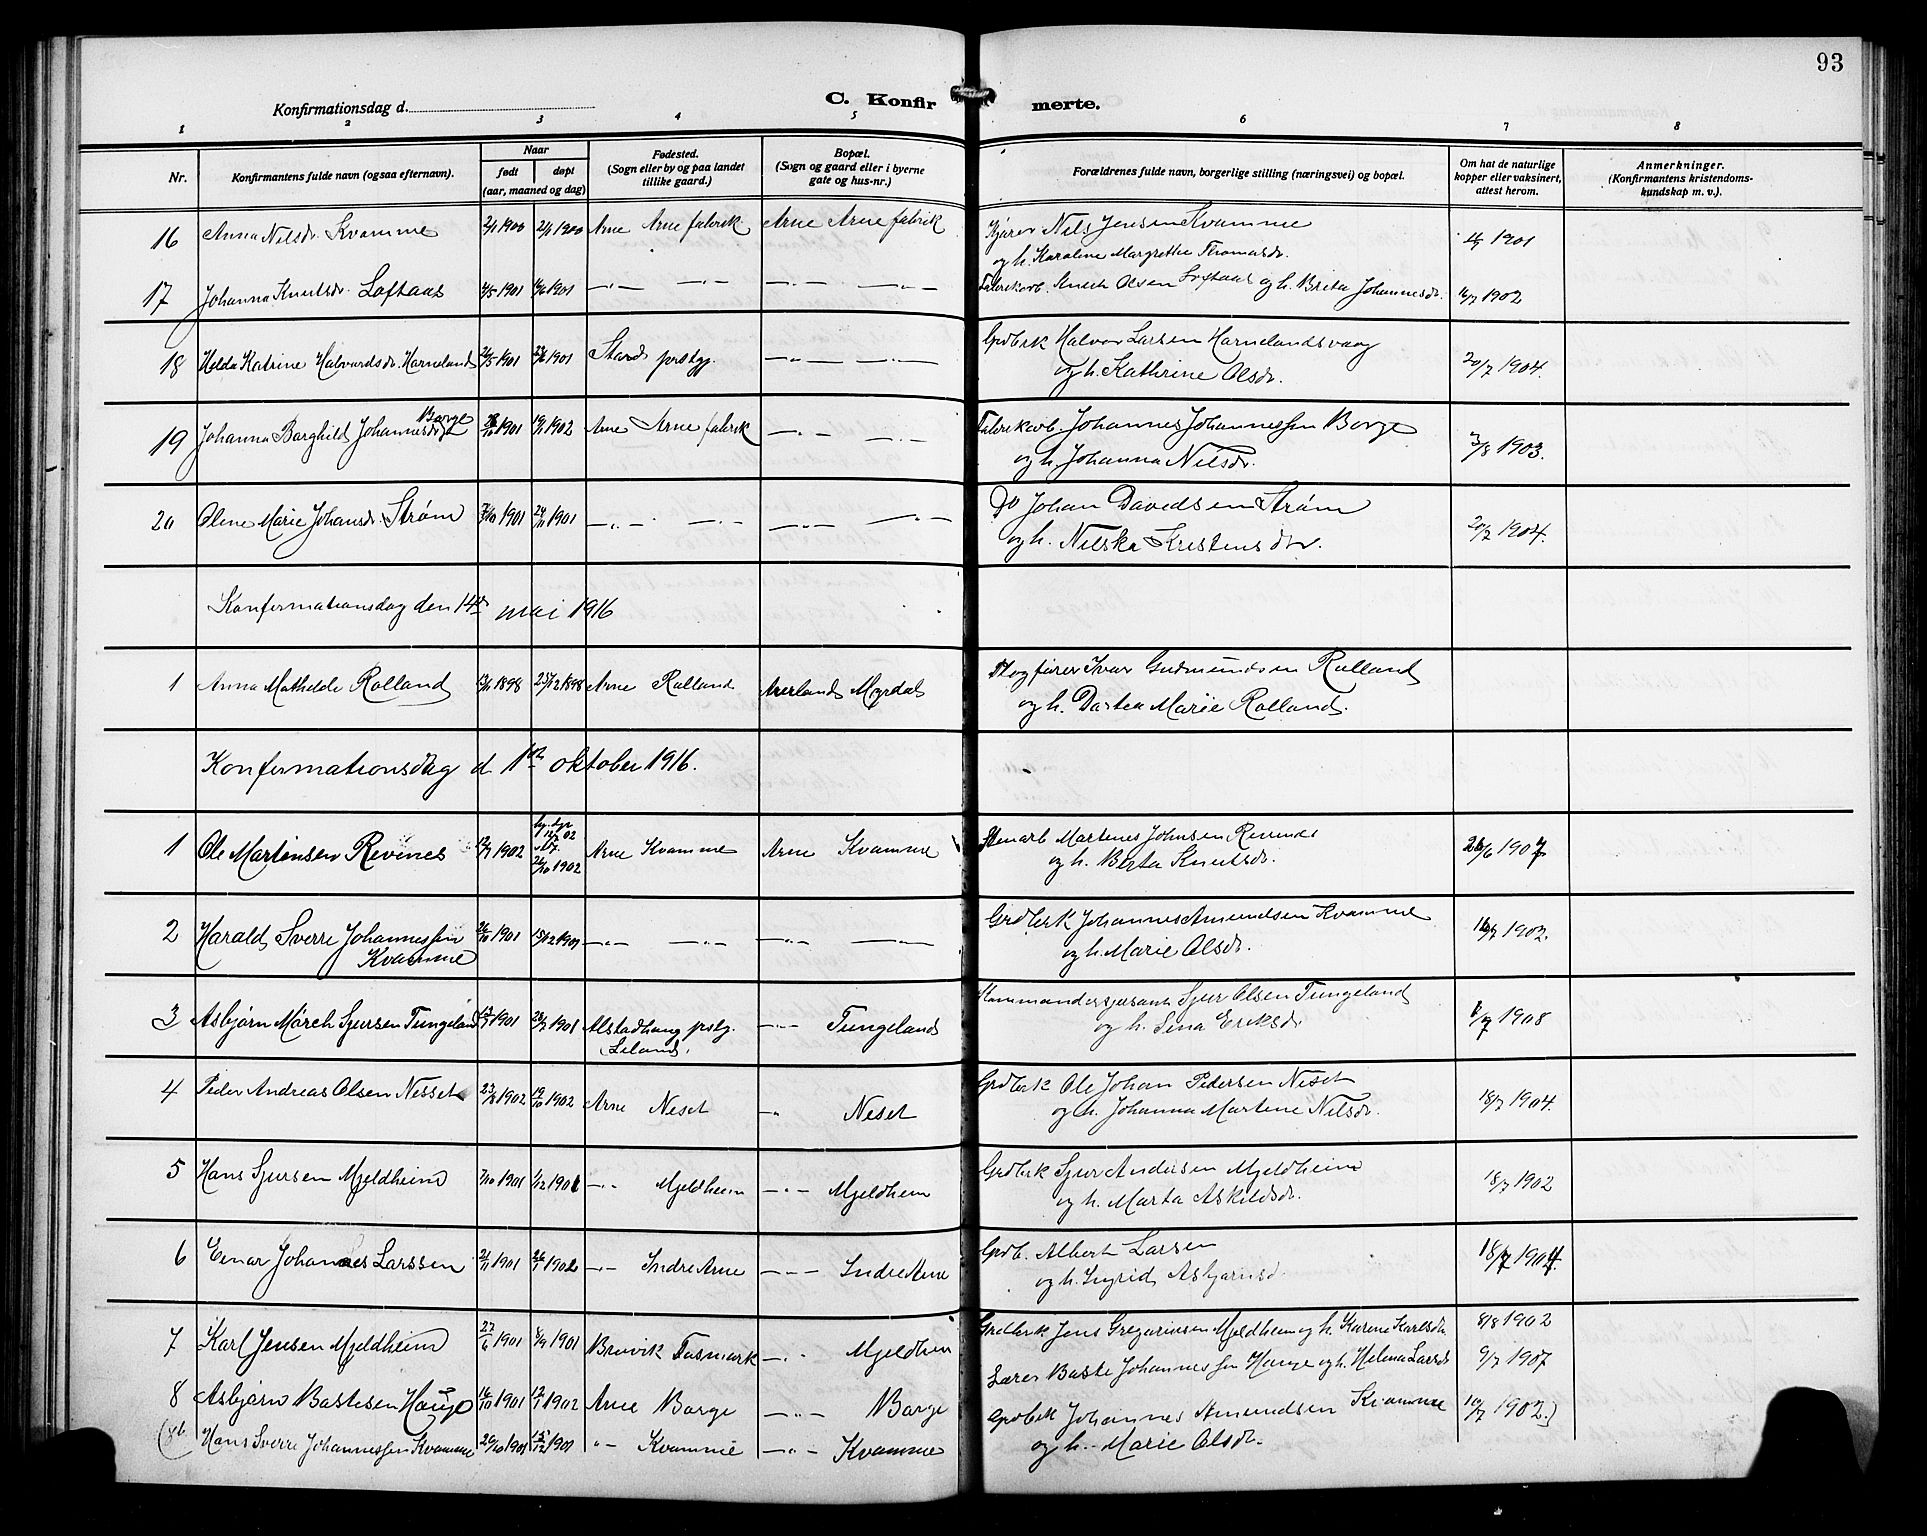 93
Konfirmationsdag d.
C. Konfirmerte.
1 2 3 4 5 6 7 8
Nr.
Konfirmantens fulde navn (ogsaa efternavn).
Naar
født døpt
(aar, maaned og dag)
Fødested.
(Sogn eller by og paa landet
tillike gaard.)
Bopæl.
(Sogn og gaard eller i byerne
gate og hus-nr.)
Forældrenes fulde navn, borgerlige stilling (næringsvei) og bopæl.
Om hat de naturlige
kopper eller vaksinert,
attest herom.
Anmerkninger.
(Konfirmantens kristendoms-
kundskap m. v.).
16 Anna Nilsdr. Kvamme 2/1 1900 1900 Arne Arne fabrik Arne Arne fabrik Kjører Nils Jensen Kvamme 1901
og h. Karoline Margrethe Thomasdr.
17 Johanna Knutsdr. Loftaas 4/5 1901 1901 —„— —„— —„— —„— Fabrikarb. Knut Olsen Loftaas og h. Brita Johannesdr. 16/7 1902
18 Helda Katrine Halvardsdr. Harneland 26/5 1901 1901 Stord prstgj. —„— —„— Grdbrk Halvor Larsen Harnelandsvaag 20/7 1904.
og h. Kathrine Olsdr.
19 Johanna Borghild Johannesdr. Borge 1901 19/1 1902 Arne Arne fabrik —„— —„— Fabrikarb. Johannes Johannessen Borge 3/8 1903.
og h. Johanna Nilsdr.
20 Oline Marie Johansdr. Strøm 7/10 1901 24/11 1901 —„— —„— —„— —„— Do Johan Davidsen Strøm 20/7 1904.
og h. Nilska Kristensdtr.
Konfirmationsdag den 14de mai 1916
1 Anna Mathilde Rolland 13/11 1898 25/12 1898 Arne Rolland Aurland Myrdal Togfører Ivar Gudmundsen Rolland
og h. Dortea Marie Rolland.
Konfirmationsdag d 1ste oktober 1916.
1 Ole Martinsen Revenes 12/7 1902 hj. dpt 12/7 02 26/10 1902 Arne Kvamme Arne Kvamme Stenarb Martines Johnsen 26/6 1907
og h. Berta Knutsdr.
2 Harald Sverre Johannessen 26/10 1901 15/12 1901 —„— —„— —„— —„— Grdbrk Johannes Amundsen Kvamme 16/7 1902.
Kvamme og h. Marie Olsdr.
3 Asbjørn Mørch Sjursen Tungeland 1901 28/7 1901 Alstadhaug prstg. —„— Tungeland Kommandersersjant Sjur Olsen Tungeland 1908
og h. Sina Eriksdr.
4 Peder Andreas Olsen Nesset 23/8 1902 19/10 1902 Arne Neset —„— Neset Grdbrk Ole Johan Pedersen Neset 18/7 1904.
og h. Johanna Martine Nilsdr.
5 Hans Sjursen Mjeldheim 7/10 1901 1/12 1901 —„— Mjeldheim —„— Mjeldheim Grdbrk Sjur Andersen Mjeldheim 18/7 1902
og h. Marta Askildsdr.
6 Einar Johannes Larssen 21/11 1901 26/1 1902 —„— Indre Arne —„— Indre Arne Grdb. Albert Larsen 18/7 1904.
og h. Ingrid Asbjørnsd
7 Karl Jensen Mjeldheim 27/6 1901 8/9 1901 Brevik Tasmark —„— Mjeldheim Grdbrk Jens Gregoriusen Mjeldheim og h. Karine Karlsdr. 8/8 1902
8 Asbjørn Bastesen Hauge 16/10 1901 12/1 1902 Arne Borge —„— Borge Lærer Baste Johannessen Hauge og h. Helena Larsdr 9/7 1907
(8b. Hans Sverre Johannessen Kvamme 26/10 1901 15/12 1901 —„— Kvamme —„— Kvamme Grdbrk Johannes Amundsen Kvamme 10/7 1902.)
og h. Marie Olsdr.